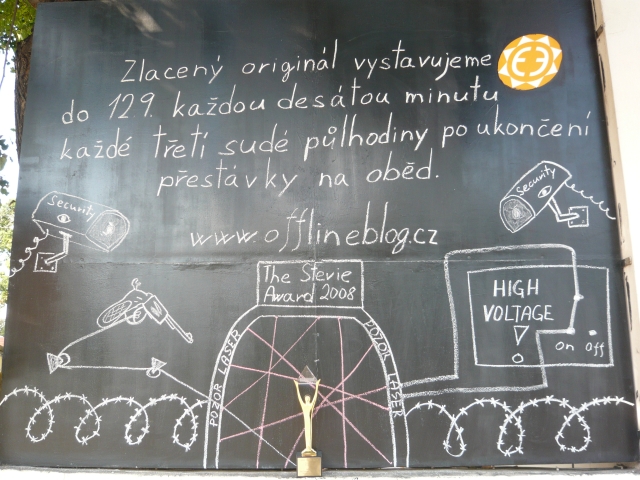 Zlacený originál vystavujeme
do 12.9. každou desátou minutu
každé třetí sudé půlhodiny po ukončení
přestávky na oběd.
Security
Security
www.offlineblog.cz
The Stevie
Award 2008
HIGH
VOLTAGE
on off
POZOR LASER
POZOR LASER